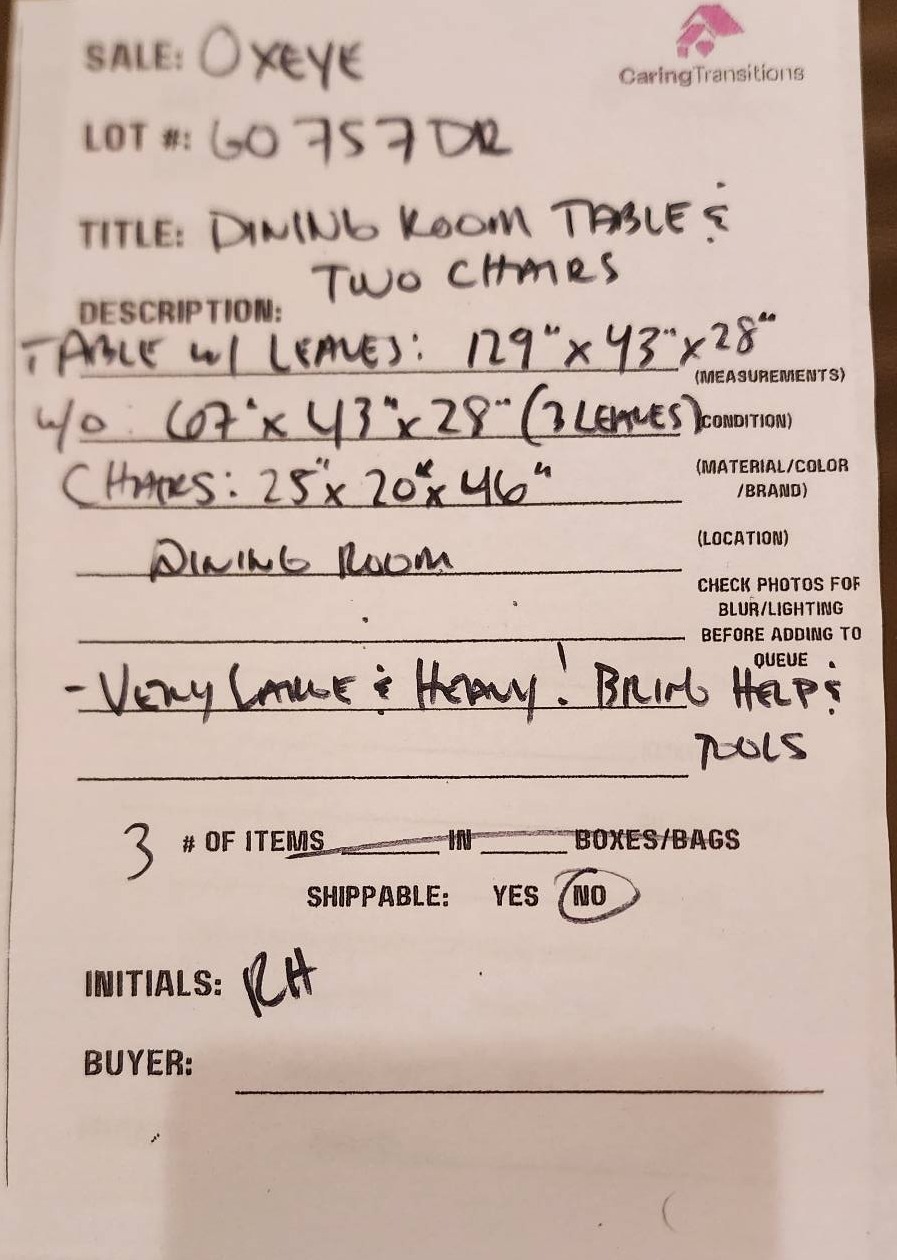 CaringTransitions
SALE: OXEYE
LOT #: 60757DR
TITLE: DINING ROOM TABLE &
TWO CHAIRS
DESCRIPTION:
TABLE W/ LEAVES: 129" x 43" x 28"
(MEASUREMENTS)
W/O: 67" x 43" x 28" (3 LEAVES)
(CONDITION)
CHAIRS: 25" x 20" x 46"
(MATERIAL/COLOR
/BRAND)
DINING ROOM
(LOCATION)
CHECK PHOTOS FOR
BLUR/LIGHTING
BEFORE ADDING TO
QUEUE
- VERY LARGE & HEAVY! BRING HELP &
TOOLS
3 # OF ITEMS ____ IN ____ BOXES/BAGS
SHIPPABLE: YES NO
INITIALS: RH
BUYER: